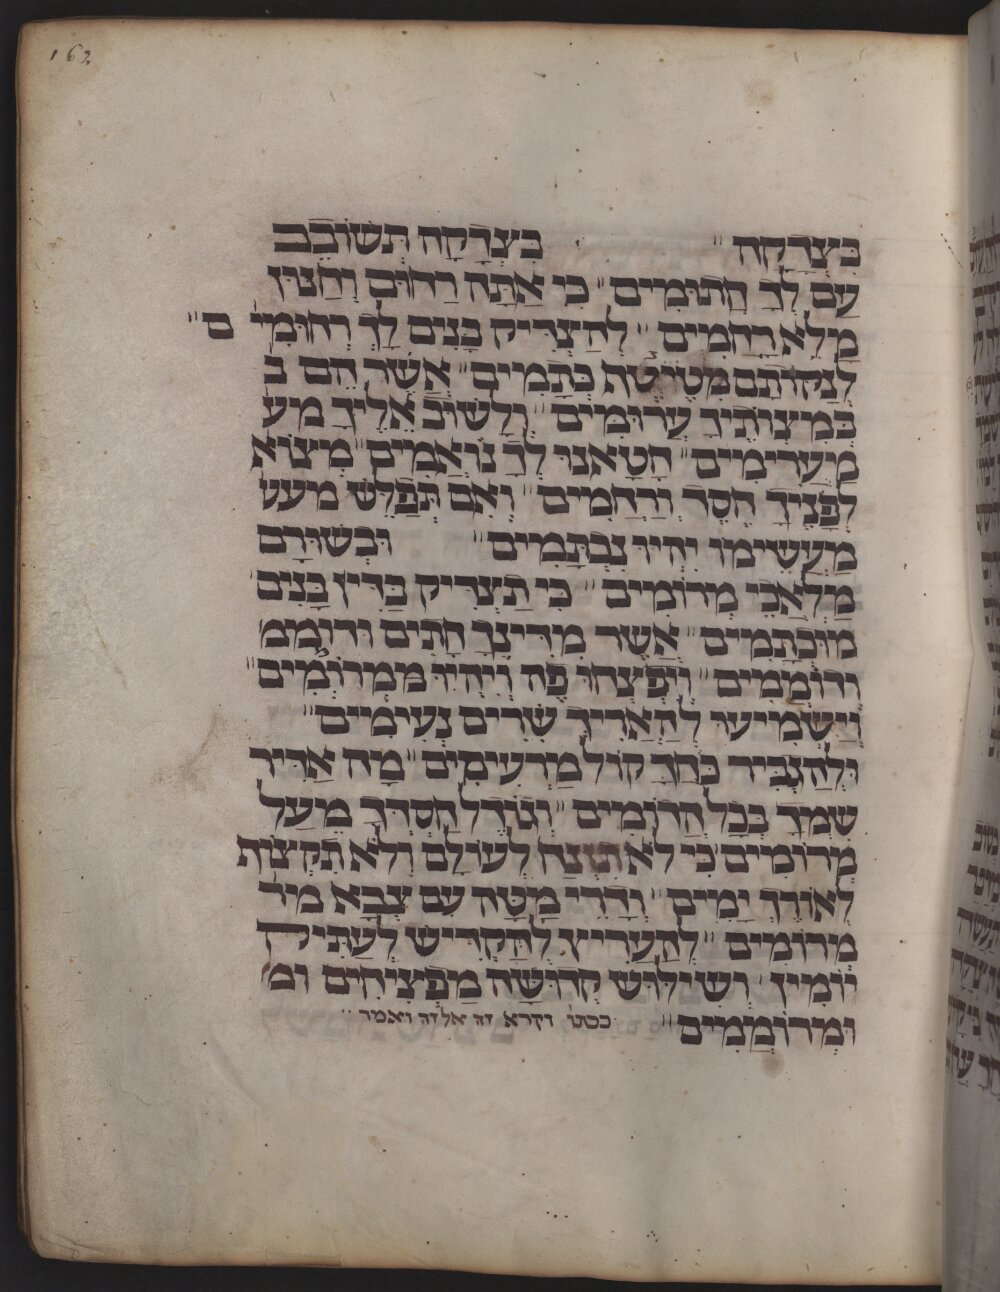 162
בצדקה " בצדקה תשובב
עם לך חתומים " כי אתה רחום וחנון
מלא רחמים " להצדיק בנים לך רחומי ם "
לנקותם מטיטת כתמים " אשר הם ב
במצותיך ערומים " ולשוב אליך מע
מערימים " חטאנו לך נואמים " מצוא
לפניך חסד ורחמים " ואם תפלש מעש
מעשימו יהיו נכתמים " ובשורם
מלאכי מרומים " כי תצדיק בדין בנים
מוכתמים " אשר מדינך חתים ודומם
ודוממים " ויפצחו פה ויהיו ממרומים "
וישמיעו להאריך שרים נעימים "
ולהגביר כחך קול מרעימים " מה אדיר
שמך בכל הדומים " וגודל חסדך מעל
מרומים " כי לא תיגח לעולם ולא תקצוף
לאורך ימים " ודרי מטה עם צבא מיר
מרומים " להעריץ להקדיש לעתיק
יומין " ושילוש קדושה מפציחים ומ
ומרוממים " בסנו